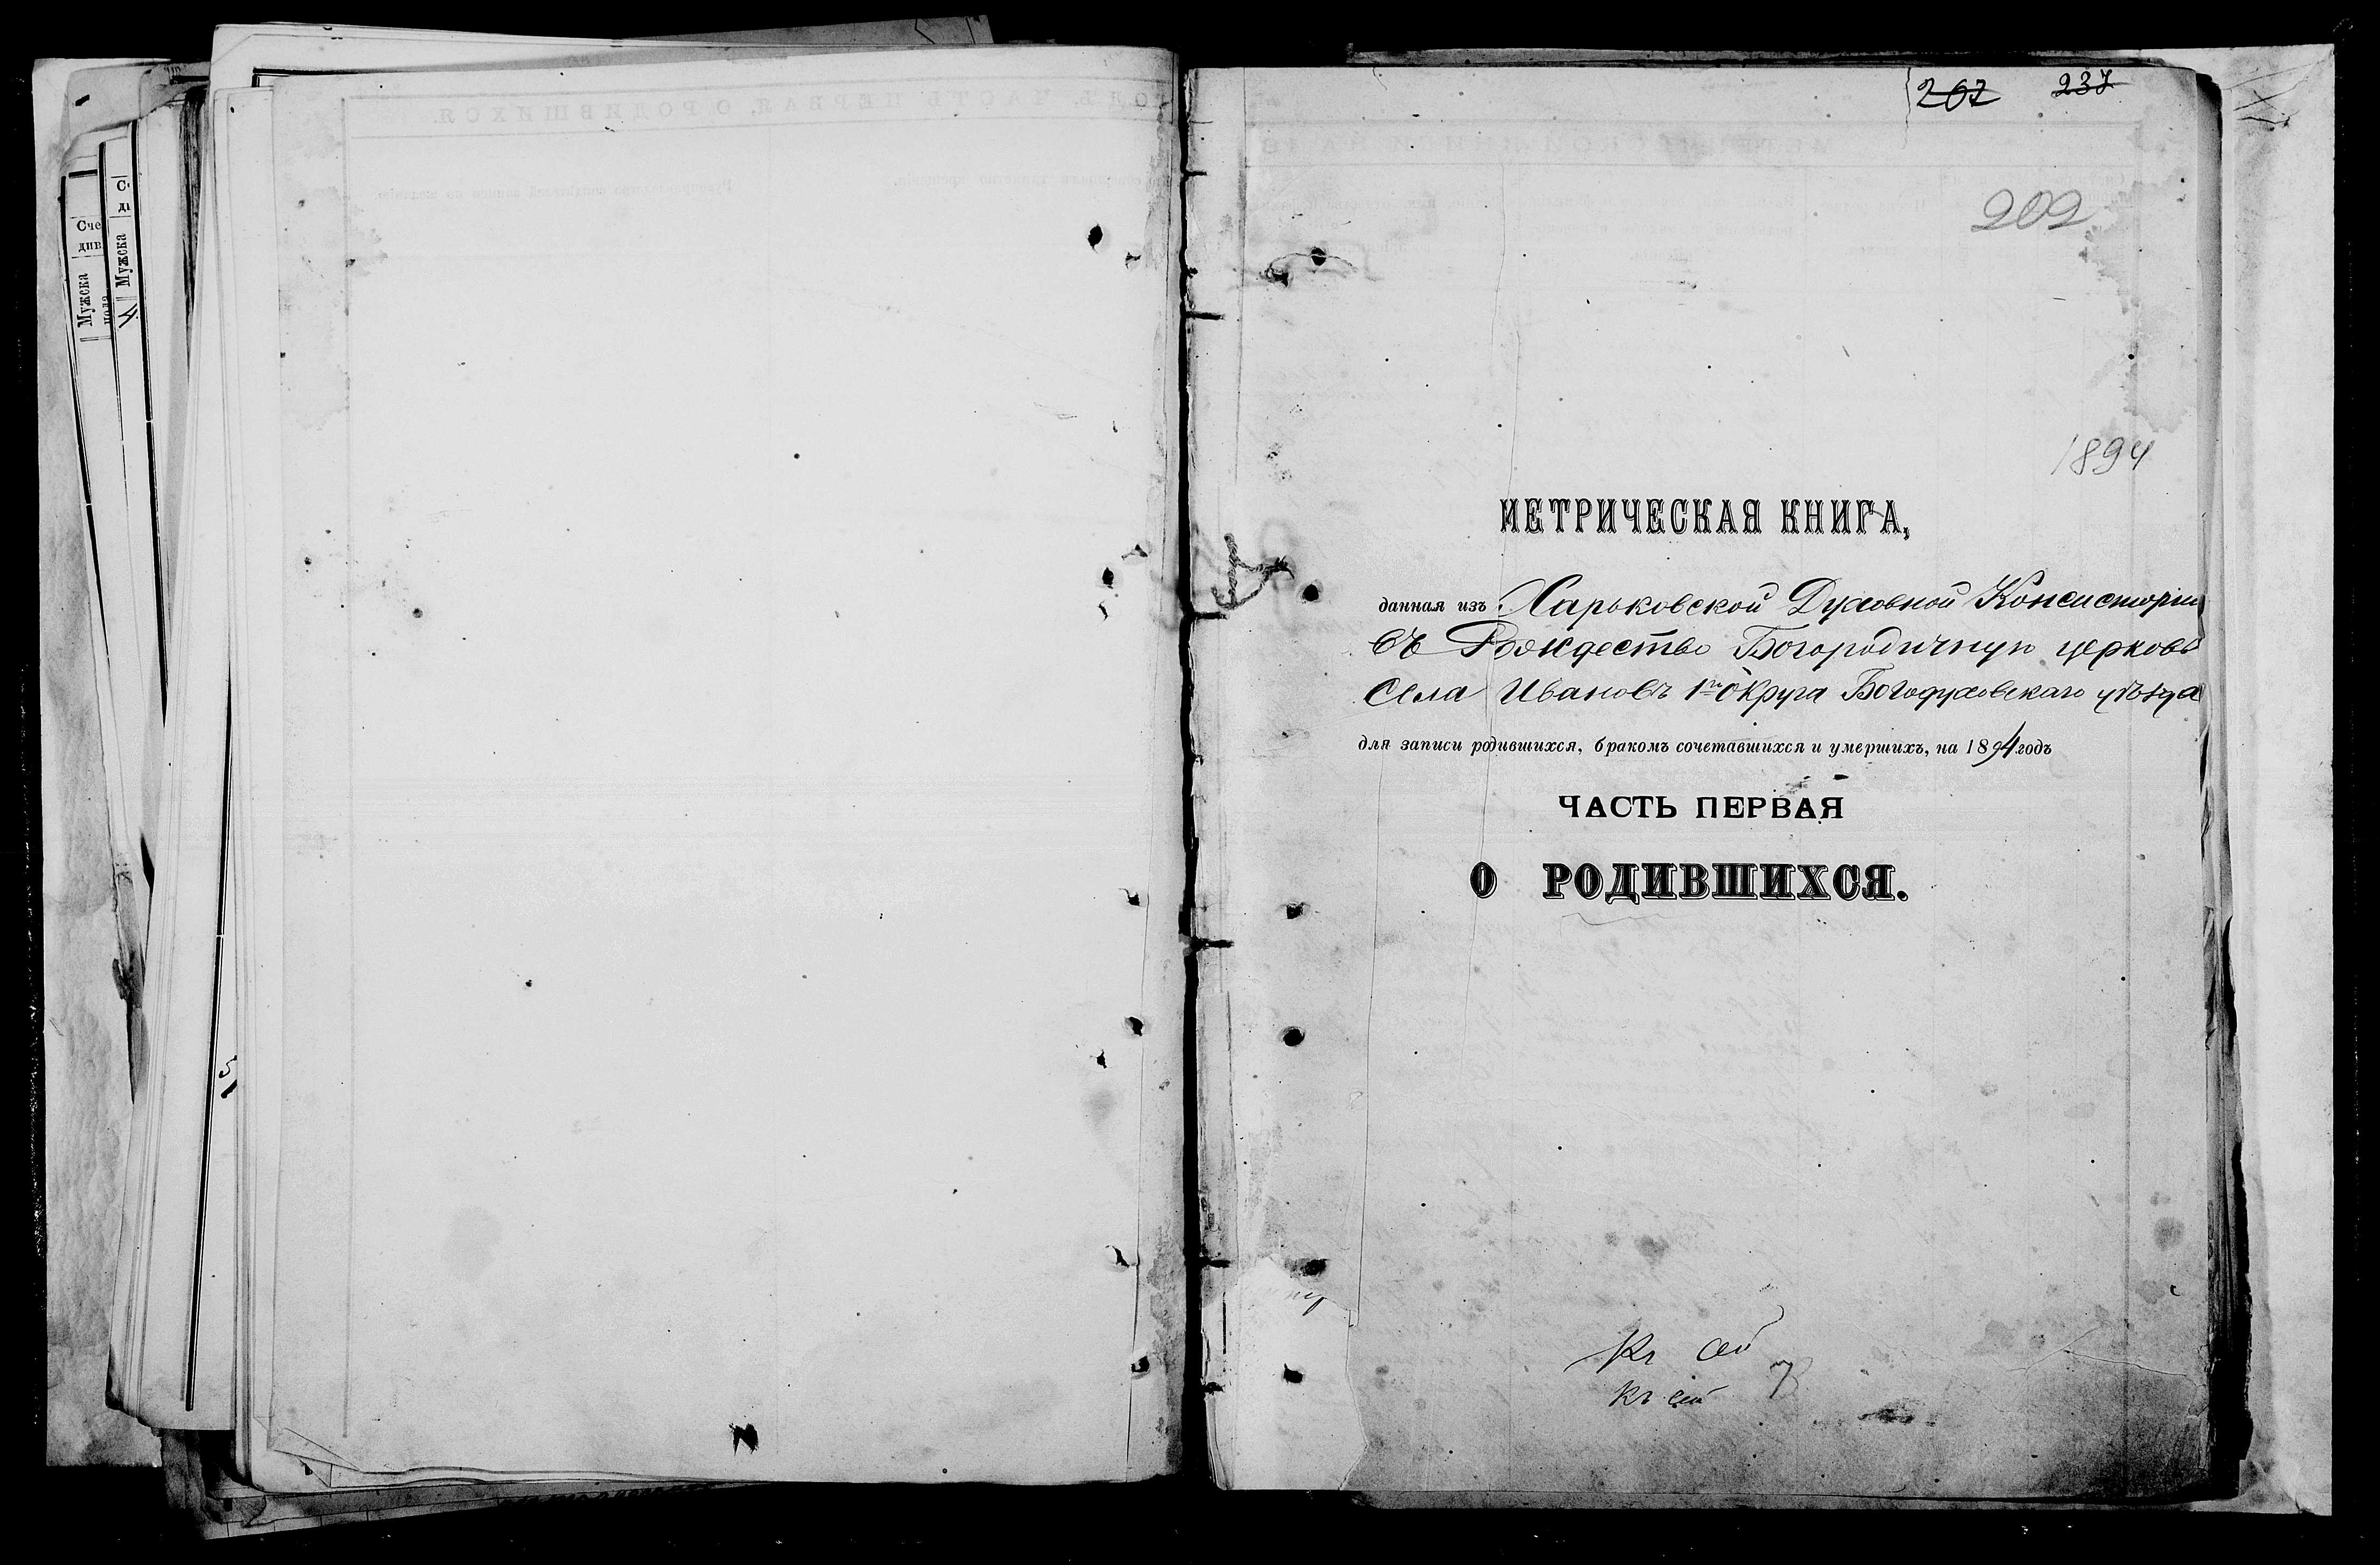 Сче
див
Мужска
пола
С
ди
Мужска
207 237
202
1894
МЕТРИЧЕСКАЯ КНИГА,
данная изъ Харьковской Духовной Консисторіи
въ Рождество Богородичную церковь
Села Ивановъ 1го Округа Богодуховскаго уѣзда
для записи родившихся, бракомъ сочетавшихся и умершихъ, на 1894 годъ
ЧАСТЬ ПЕРВАЯ
О РОДИВШИХСЯ.
Къ сей